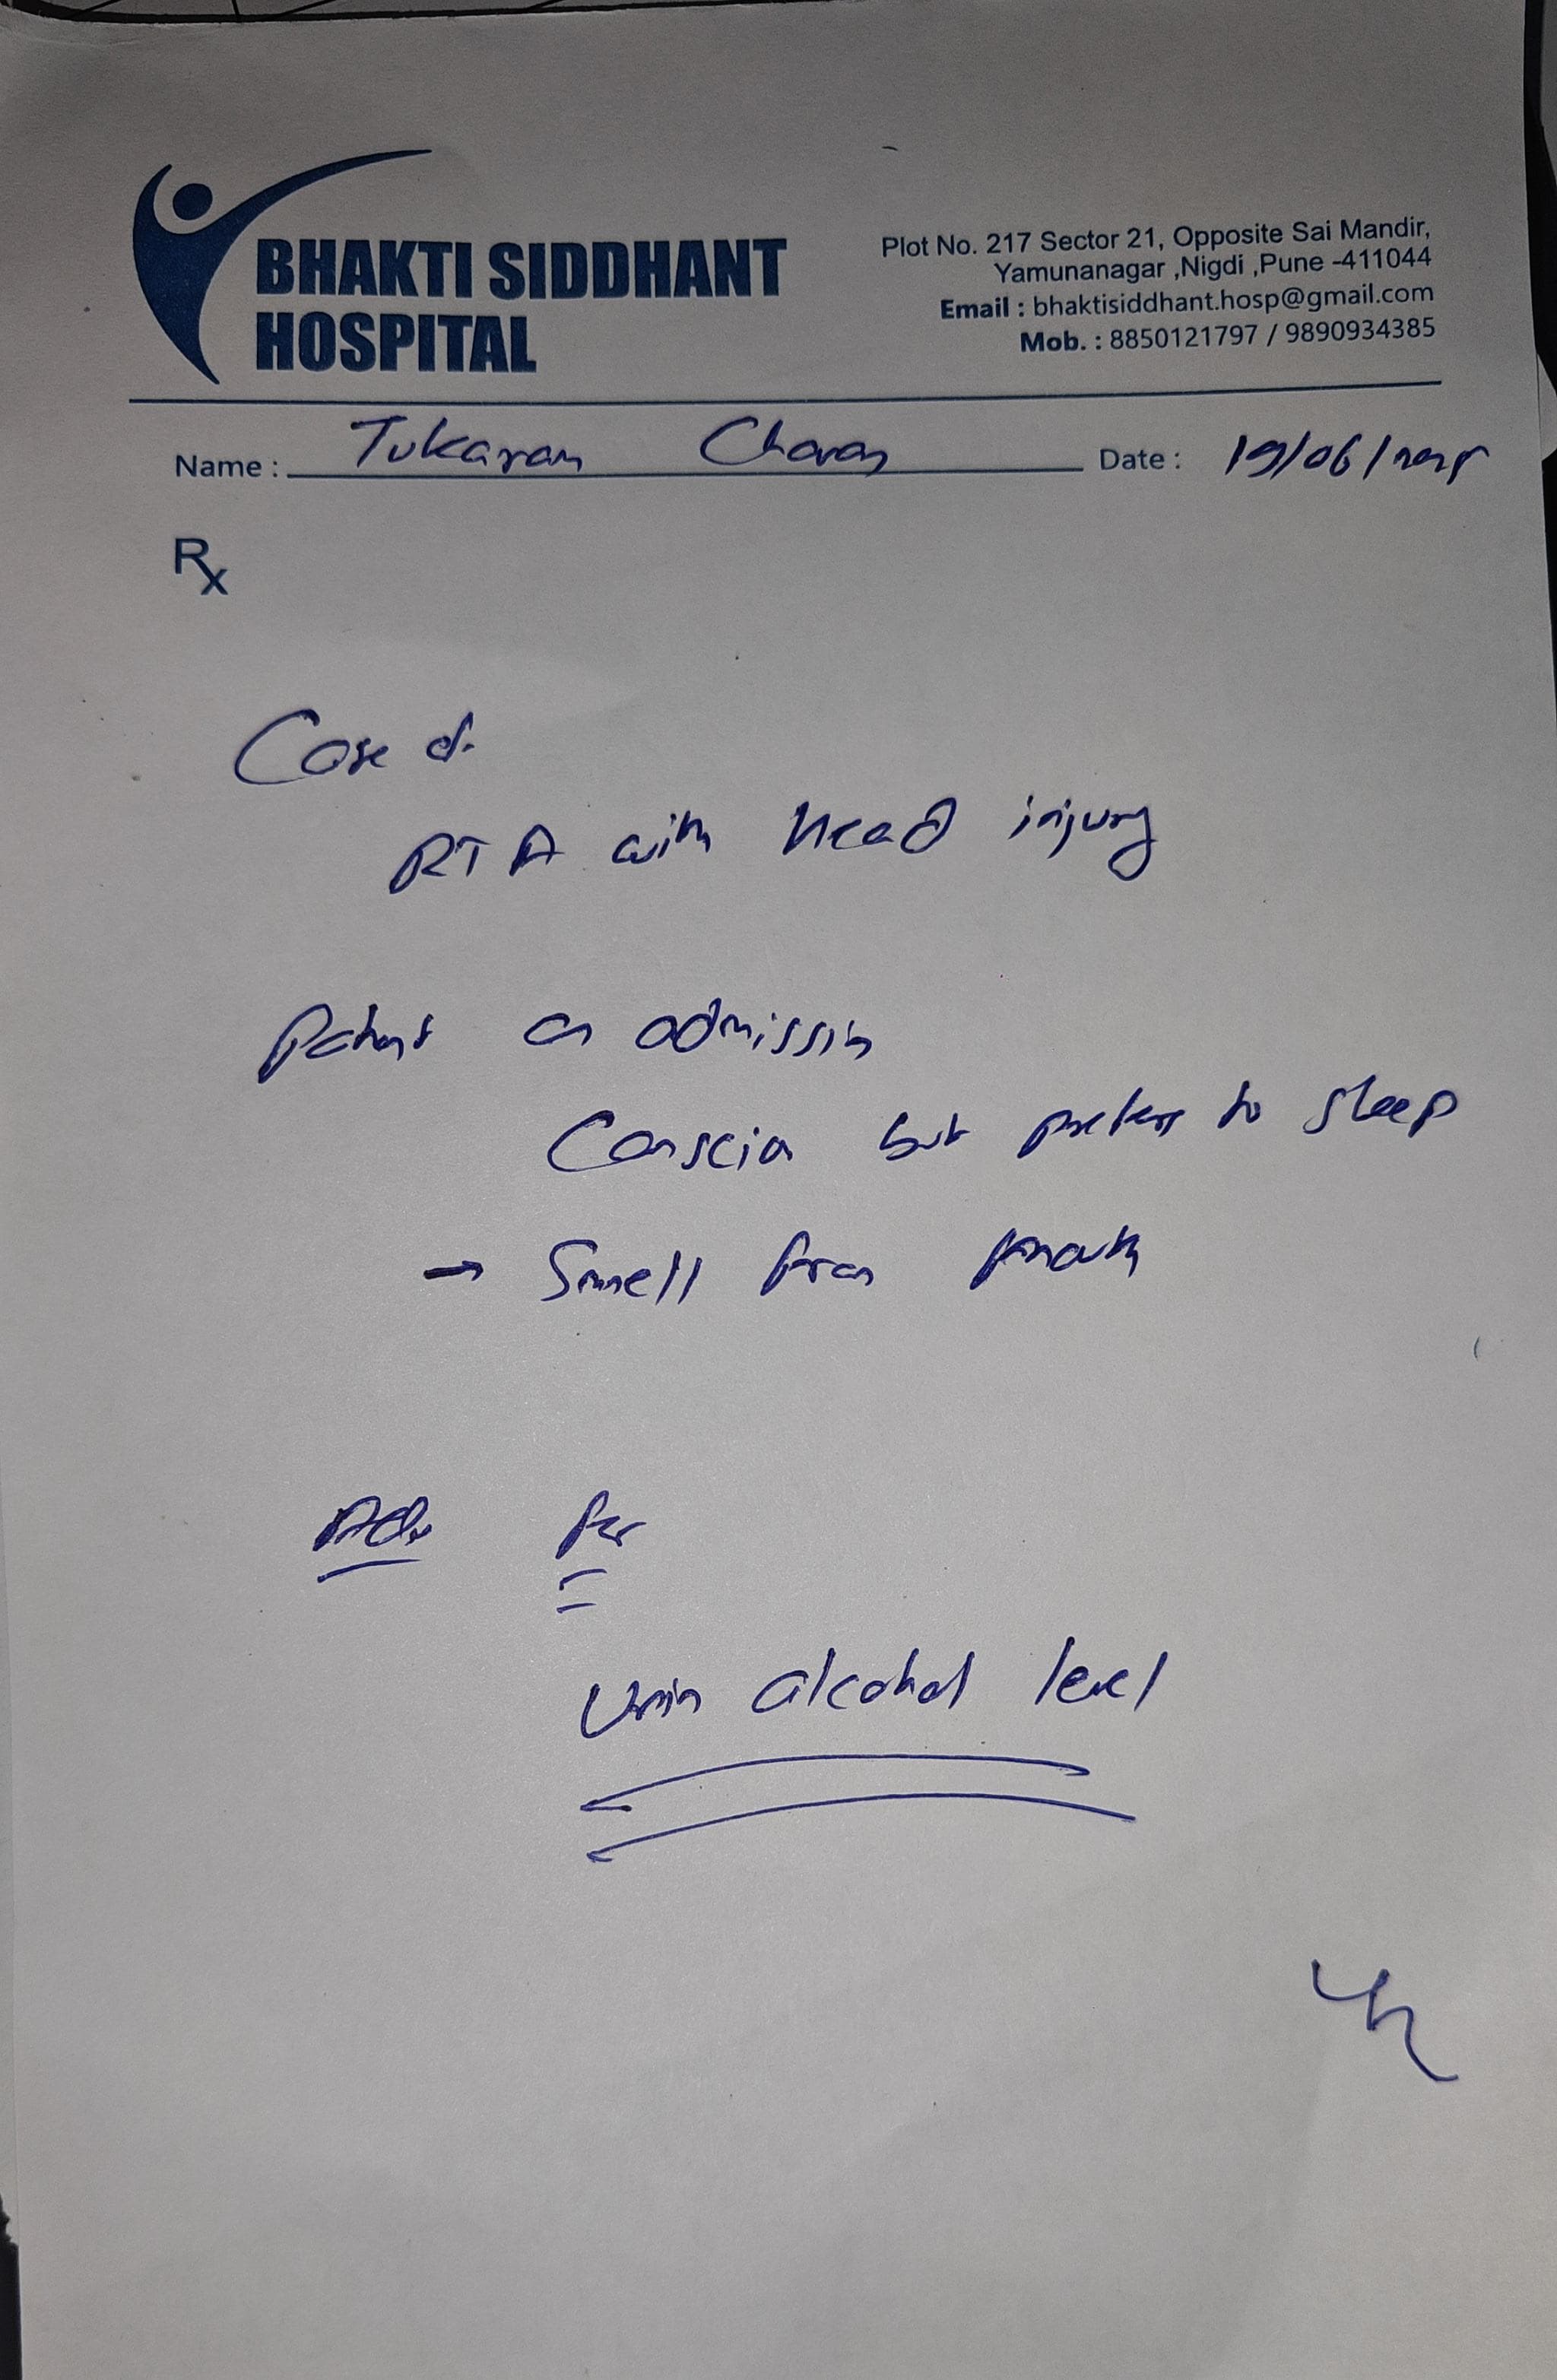 BHAKTI SIDDHANT
HOSPITAL
Plot No. 217 Sector 21, Opposite Sai Mandir,
Yamunanagar ,Nigdi ,Pune -411044
Email : bhaktisiddhant.hosp@gmail.com
Mob. : 8850121797 / 9890934385
Name : Tukaram Chavan Date : 19/06/2025
Rx
Case of
RTA with Head injury
Patient on admission
Conscious but prefers to sleep
→ Smell from mouth
Adv for
Urin alcohol level